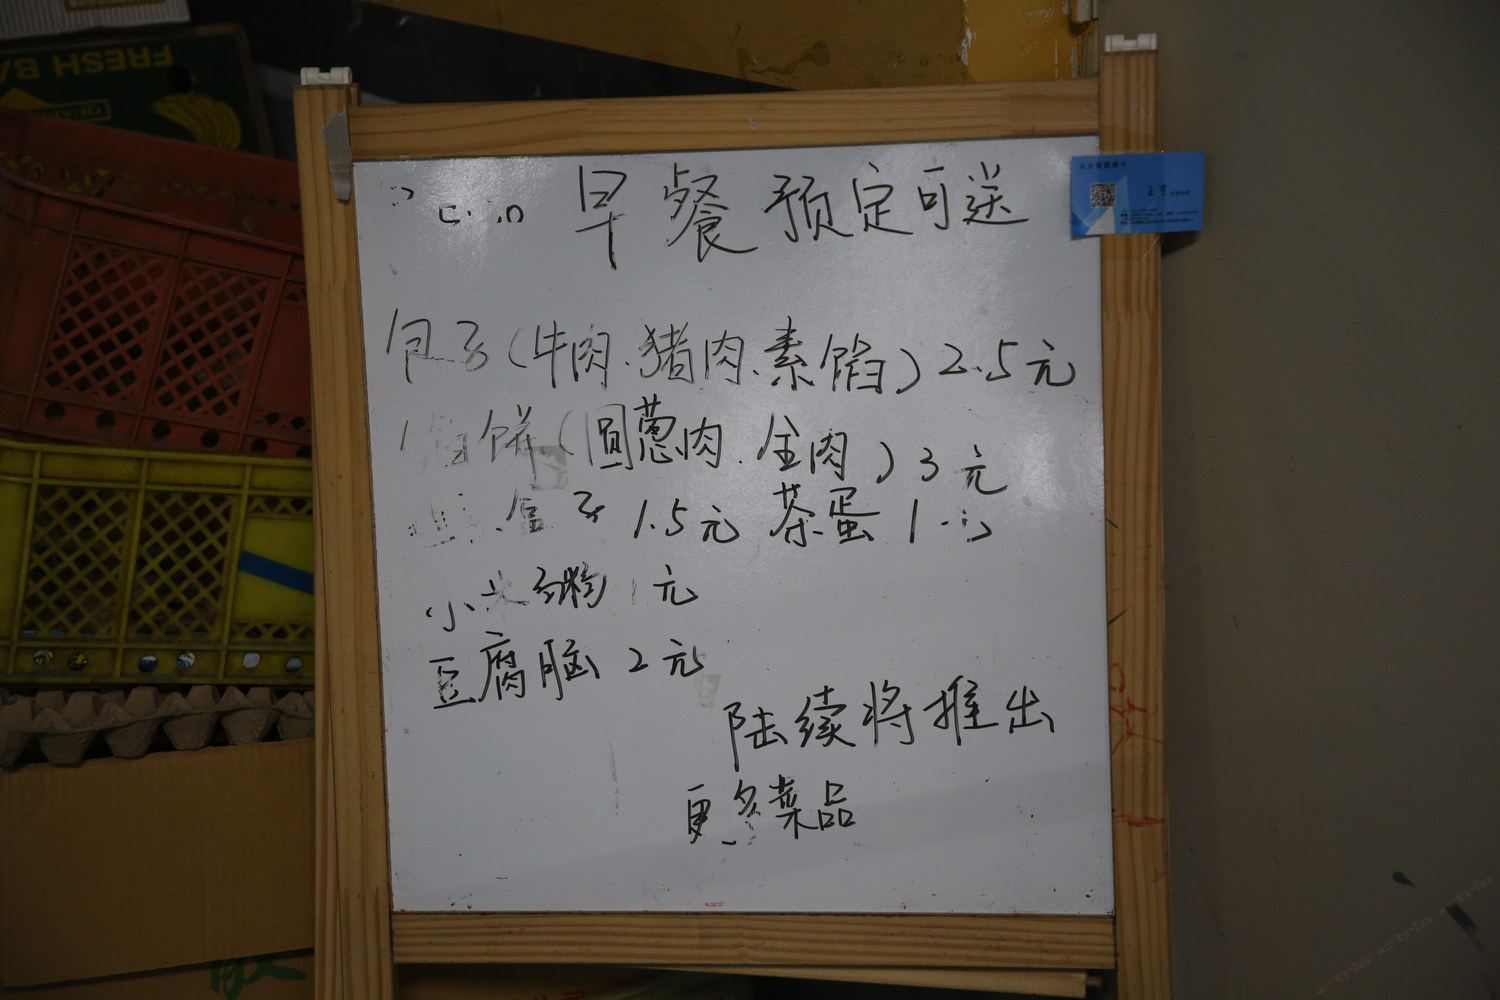 FRESH BA
早餐预定可送
包子(牛肉、猪肉、素馅)2.5元
馅饼(圆葱肉、全肉)3元
盒子 1.5元 茶蛋 1.5
小米粥 1元
豆腐脑 2元
陆续将推出
更多菜品